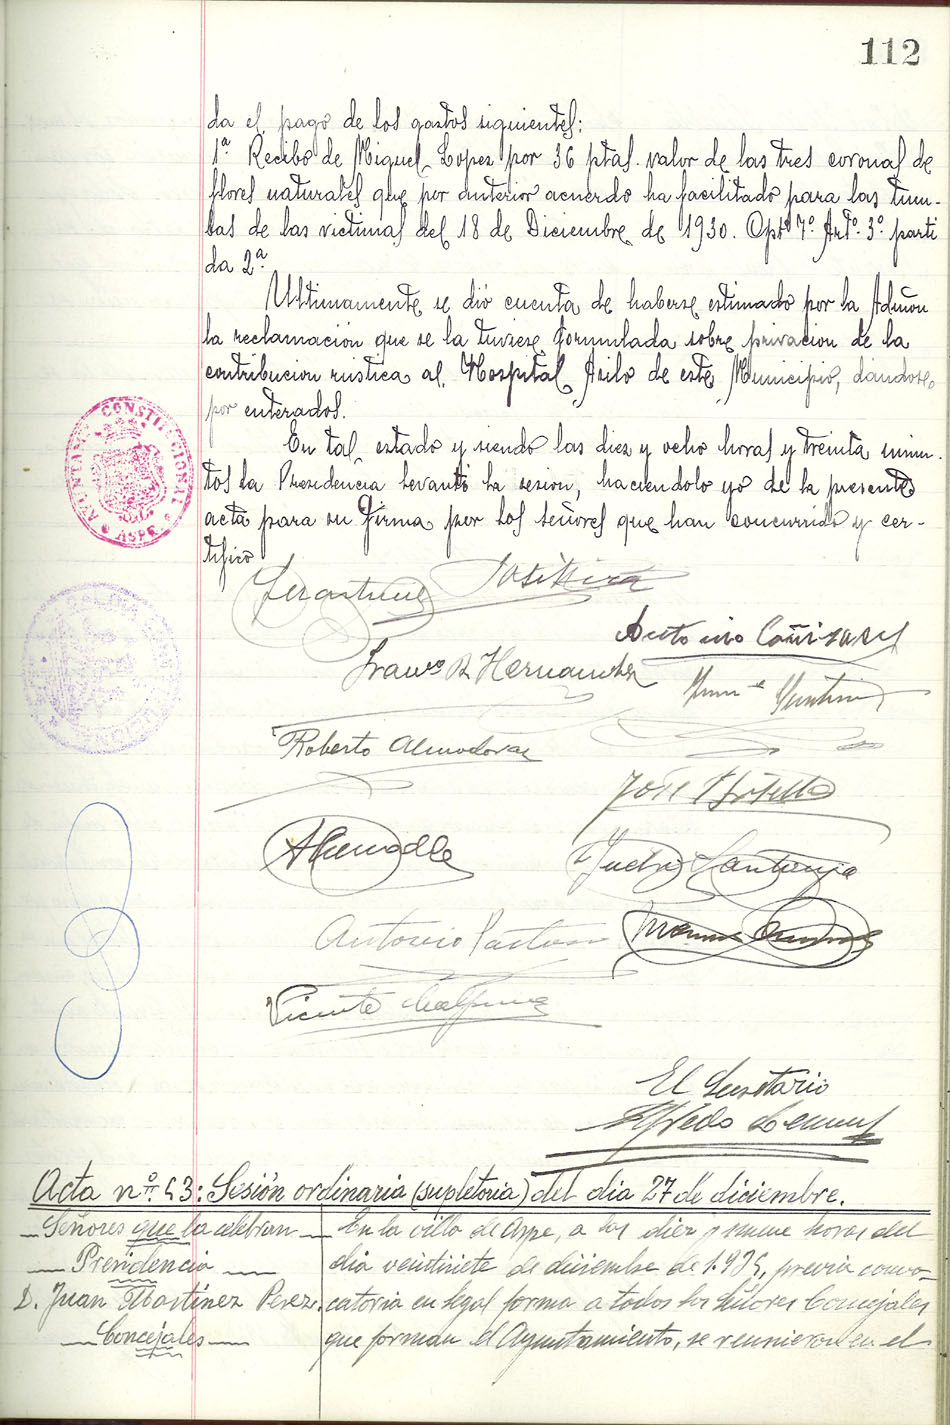 112
da el pago de los gastos siguientes:
1ª Recibo de Miguel Lopez por 36 ptas. valor de las tres coronas de
flores naturales que por anterior acuerdo ha facilitado para las tum-
bas de las victimas del 18 de Diciembre de 1930. Cptº 7º Artº. 3º parti
da 2ª
Ultimamente se dió cuenta de haberse estimado por la Admon
la reclamación que se la tuviese formulada sobre privacion de la
contribucion rústica al Hospital Asilo de este Municipio, dandose
por enterados.
En tal estado y siendo las diez y ocho horas y treinta minu-
tos la Presidencia levantó la sesion, haciendolo yo de la presente
acta para su firma por los señores que han concurrido y cer-
tifico
AYUNTAMTO CONSTITUCIONAL
ASPE
Antonio Cañizares
Franco Hernandez
Roberto Almodovar
José Botella
Pedro Santonja
Antonio Pastor
Vicente
El Secretario
Alfredo
Acta nº. 43: Sesión ordinaria (supletoria) del dia 27 de diciembre.
Señores que la celebran
Presidencia
D. Juan Martínez Perez.
Concejales
En la villa de Aspe, a las diez y nueve horas del
dia veintisiete de diciembre de 1.934, previa convo-
catoria en legal forma a todos los Señores Concejales
que forman el Ayuntamiento, se reunieron en el